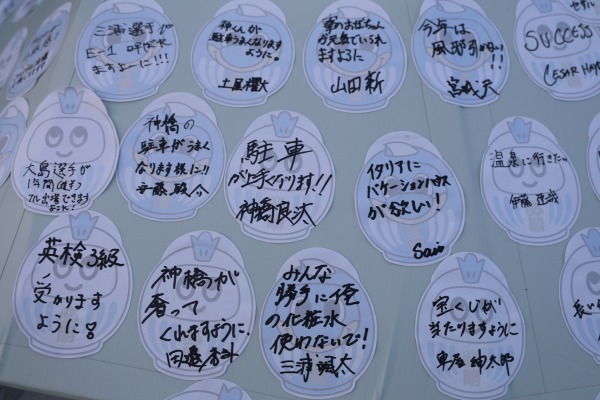 三浦選手が
E-1 呼ばれ
ますよーに!!!
神くんが
駐車うまくなります
ように。
土屋櫂大
車のおばちゃん
が元気でいられ
ますように
山田新
今年は
風邪引かない
!!
宮城 天
SUCCESS
CESAR HAY
大島選手が
1年間
フル出場できます
ように!
神橋の
駐車がうまく
なります様に!!
安藤駿介
駐車
が上手くなります!!
神橋良汰
イタリアに
バケーションハウス
が欲しい!
Sai
温泉に行きたい
伊藤達哉
英検3級
受かります
ように
神橋が
奢って
くれますように.
みんな
勝手に俺
の化粧水
使わないで!
三浦颯太
宝くじが
当たりますように
車屋 紳太郎